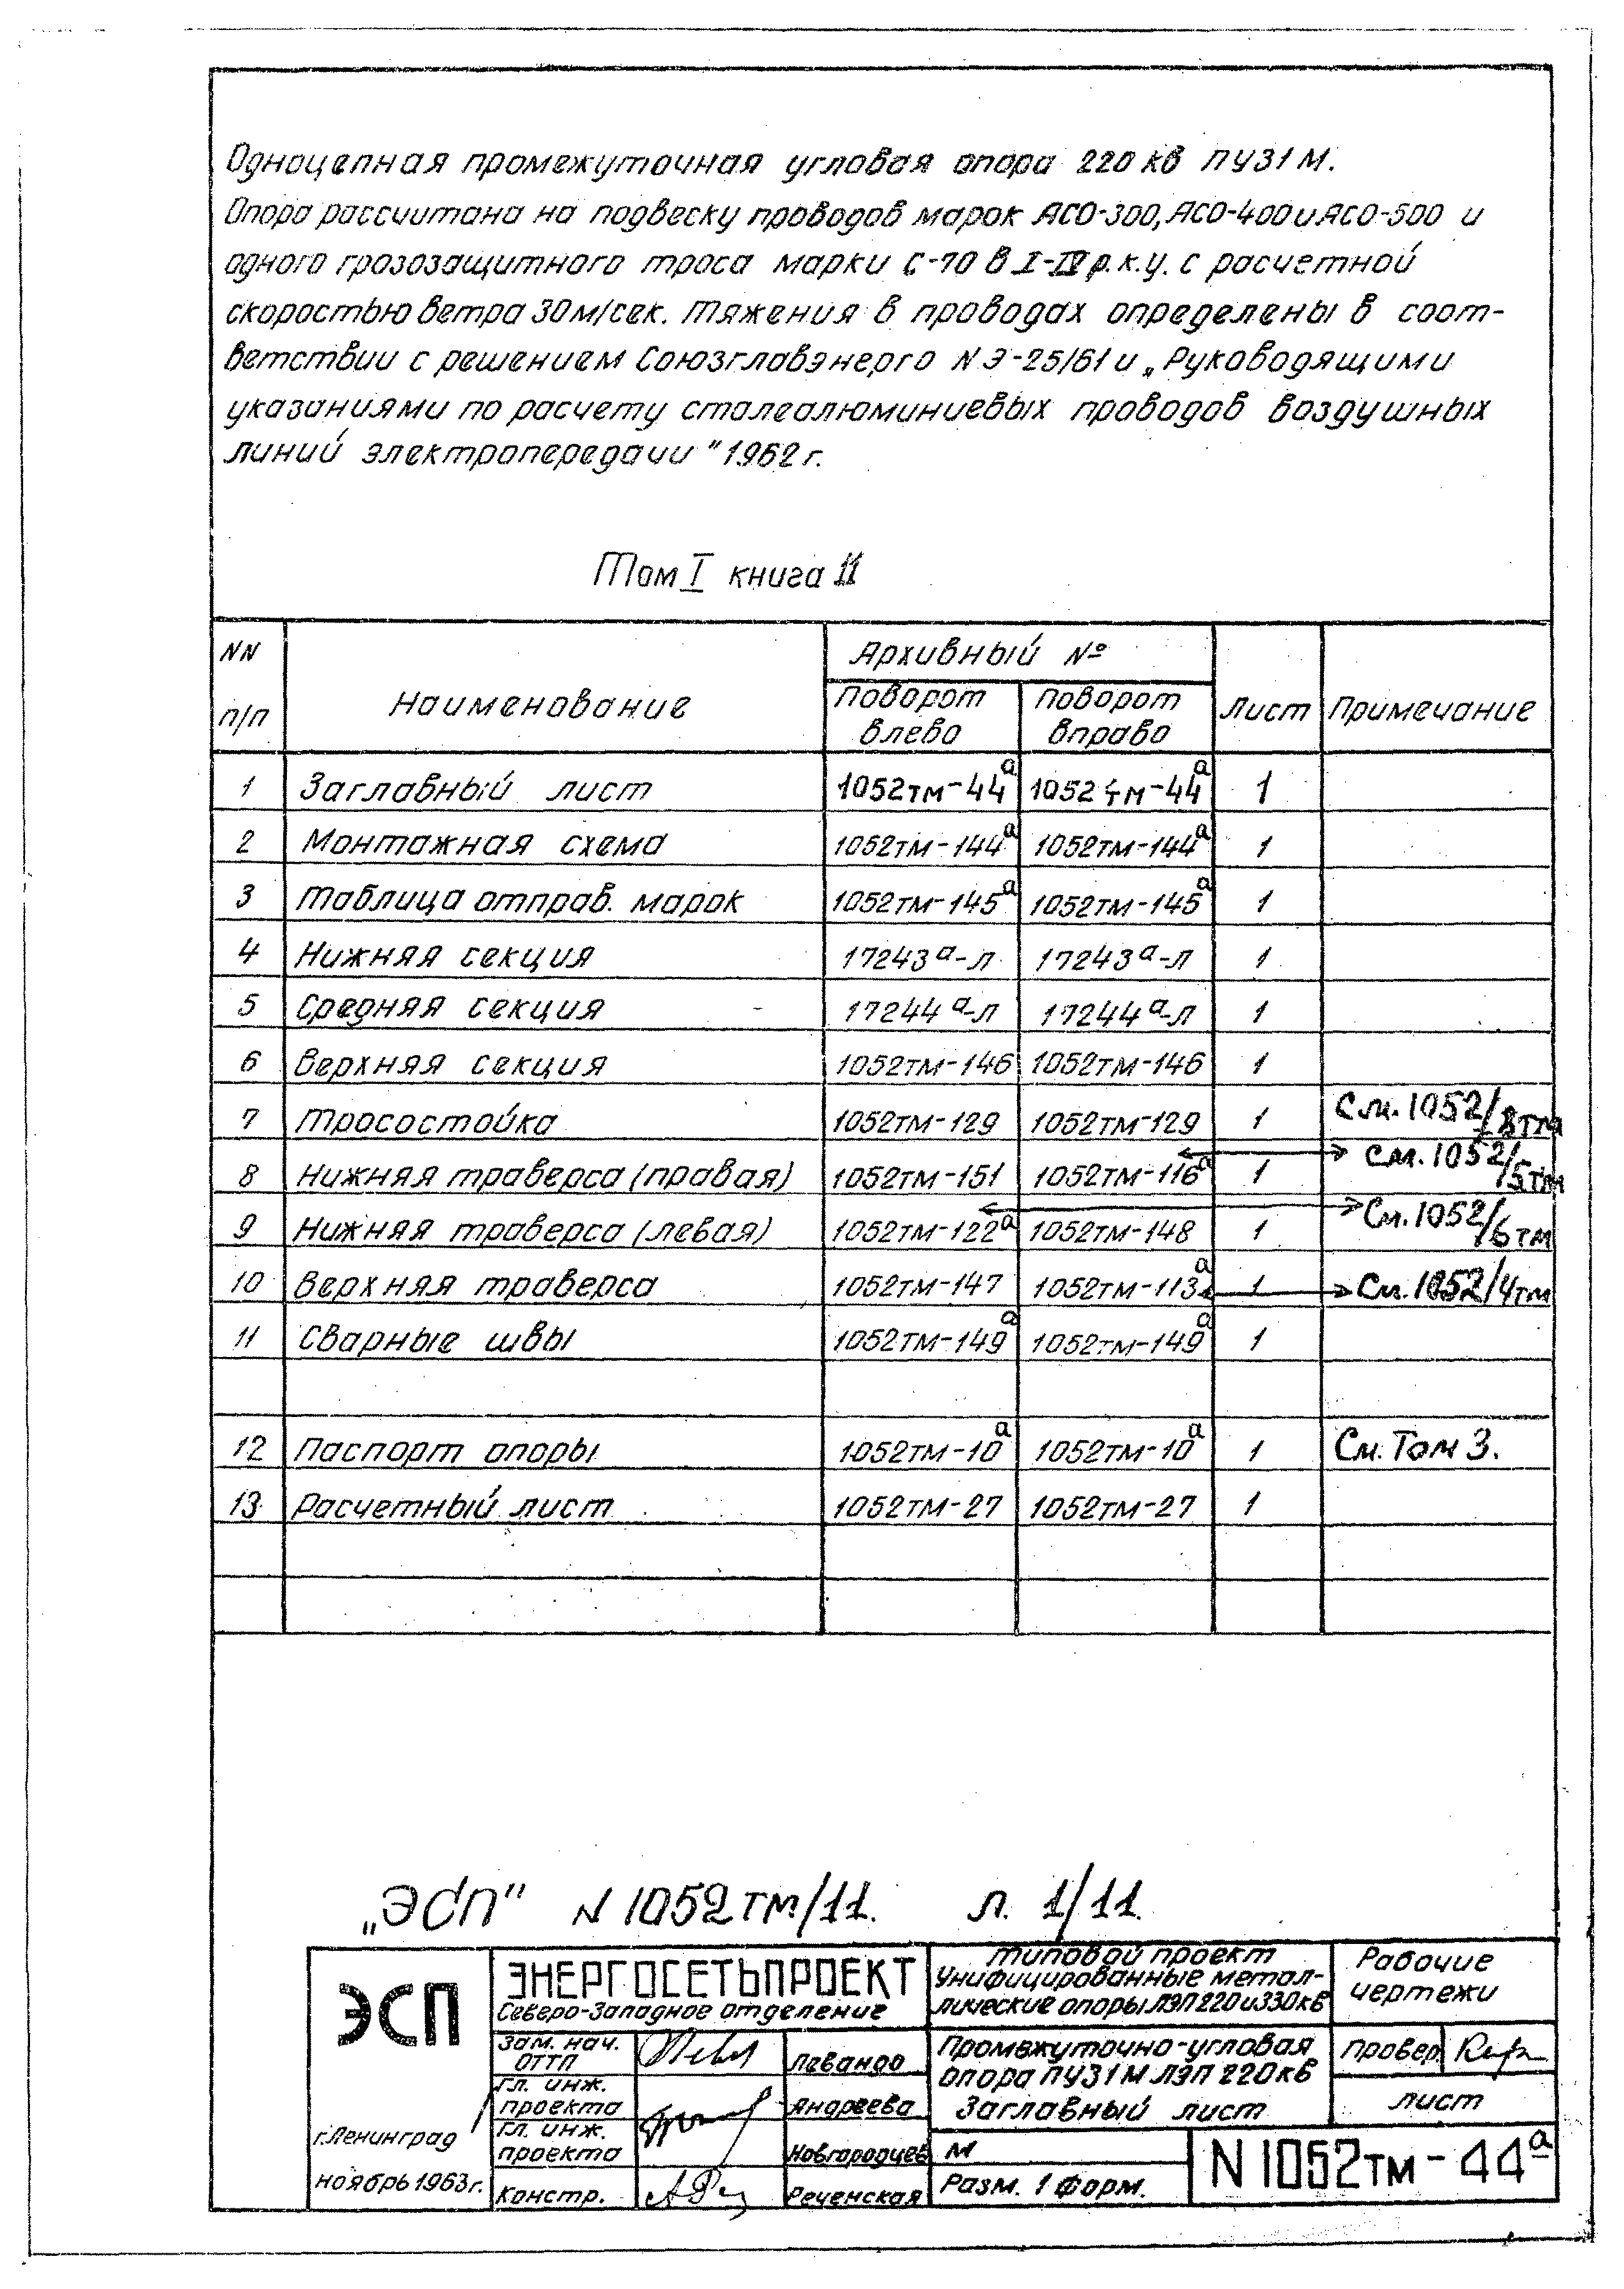 Одноцепная промежуточная угловая опора 220 кв ПУ31М.
Опора рассчитана на подвеску проводов марок АСО-300, АСО-400 и АСО-500 и
одного грозозащитного троса марки С-70 в I-IV р.к.у. с расчетной
скоростью ветра 30 м/сек. Тяжения в проводах определены в соот-
ветствии с решением Союзглавэнерго N Э-25/61 и „Руководящими
указаниями по расчету сталеалюминиевых проводов воздушных
линий электропередачи" 1962 г.
Том I книга 11
NN п/п Наименование Архивный № Лист Примечание
Поворот влево Поворот вправо
1 Заглавный лист 1052тм-44а 1052тм-44а 1
2 Монтажная схема 1052тм-144а 1052тм-144а 1
3 Таблица отправ. марок 1052тм-145а 1052тм-145а 1
4 Нижняя секция 17243а-л 17243а-л 1
5 Средняя секция 17244а-л 17244а-л 1
6 Верхняя секция 1052тм-146 1052тм-146 1
7 Тросостойка 1052тм-129 1052тм-129 1 См. 1052/8тм
8 Нижняя траверса (правая) 1052тм-151 1052тм-116а 1 См. 1052/5тм
9 Нижняя траверса (левая) 1052тм-122а 1052тм-148 1 См. 1052/6тм
10 Верхняя траверса 1052тм-147 1052тм-113а 1 См. 1052/4тм
11 Сварные швы 1052тм-149а 1052тм-149а 1
12 Паспорт опоры 1052тм-10а 1052тм-10а 1 См. Том 3.
13 Расчетный лист 1052тм-27 1052тм-27 1
„ЭСП" N 1052тм/11. л. 1/11
ЭСП
г. Ленинград
ноябрь 1963г.
ЭНЕРГОСЕТЬПРОЕКТ
Северо-Западное отделение
Зам. нач. ОТТП Левандо
Гл. инж. проекта Андреева
Гл. инж. проекта Новгородцев
Констр. Реченская
Типовой проект
Унифицированные метал-
лические опоры ЛЭП 220 и 330кв
Промежуточно-угловая
опора ПУ31М ЛЭП 220кв
Заглавный лист
М
Разм. 1 Форм.
Рабочие
чертежи
Провер
Лист
N 1052тм-44а